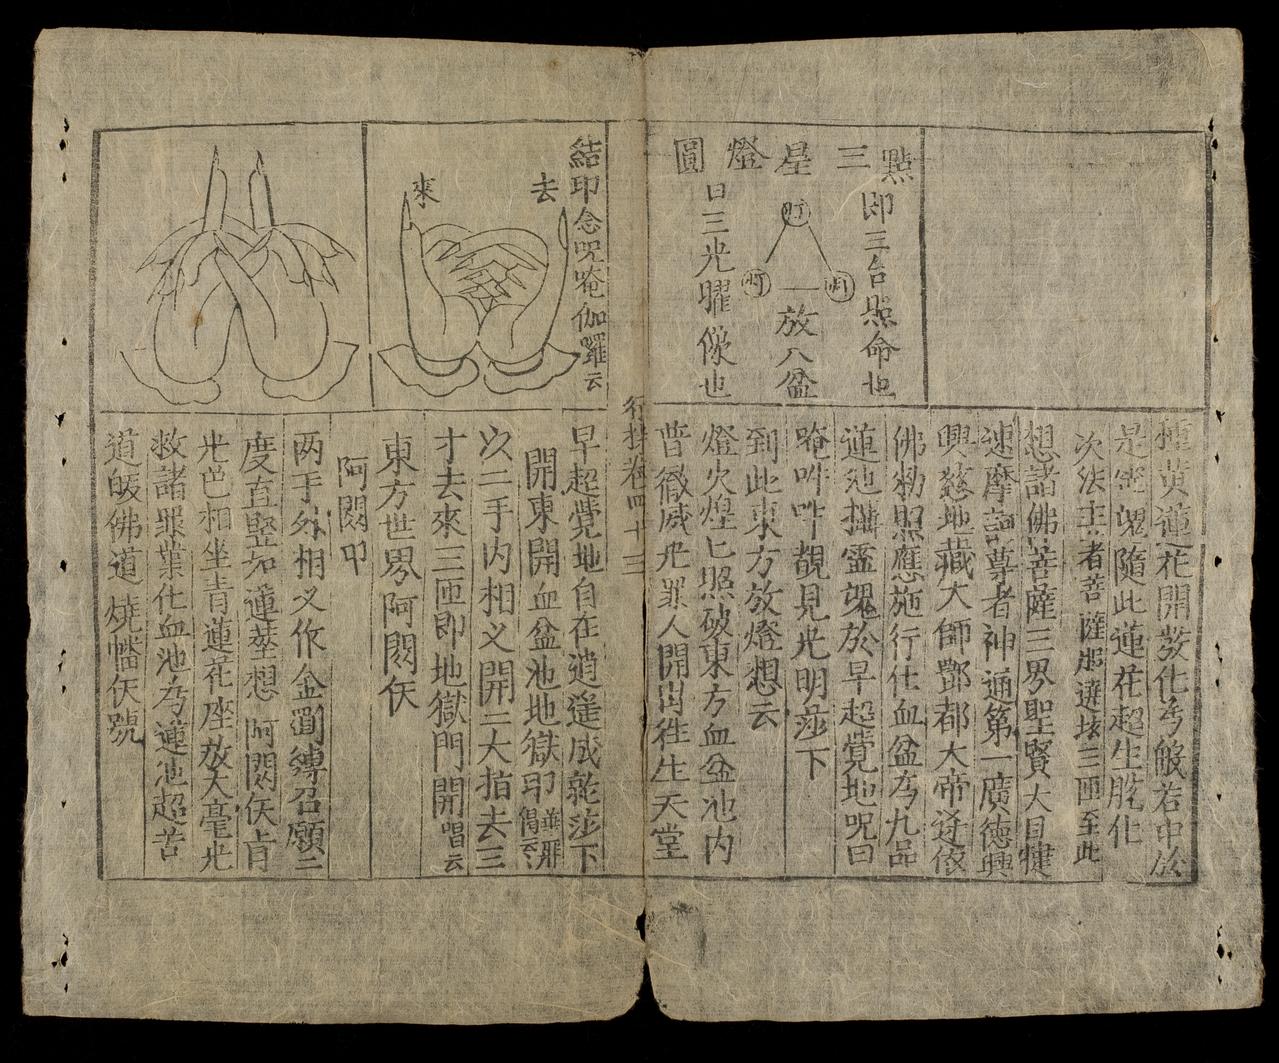 點三星燈圖
即三台照命也
一放八盆
曰三光曜像也
種黄蓮花開教化为般若中於
是空魂隨此蓮花超生脱化
次法主者菩薩
想諸佛菩薩三界聖賢大目犍
速摩訶尊者神通第一廣德興
興慈地藏大師酆都大帝逰依
佛勑照應施行仕血盆为九品
蓮池攝霊魂於早超覺地呪曰
唵吽吽靚見光明莎下
到此東方放燈想云
燈火煌匕照破東方血盆池内
昔徹威光罪人開出徃生天堂
行持卷四十三
結印念呪唵伽羅云
去
來
早超覺地自在逍遥成就莎下
開東開血盆池地獄印
次二手内相义開二大指去三
才去來三匝即地獄門開唱云
東方世界阿閦佛
阿閦印
两手外相义作金罰縛召願二
度直竪如蓮莖想阿閦佛肯
光色相坐青蓮花座放大毫光
救諸罪業化血池为蓮池超苦
道皈佛道 燒旛佛號